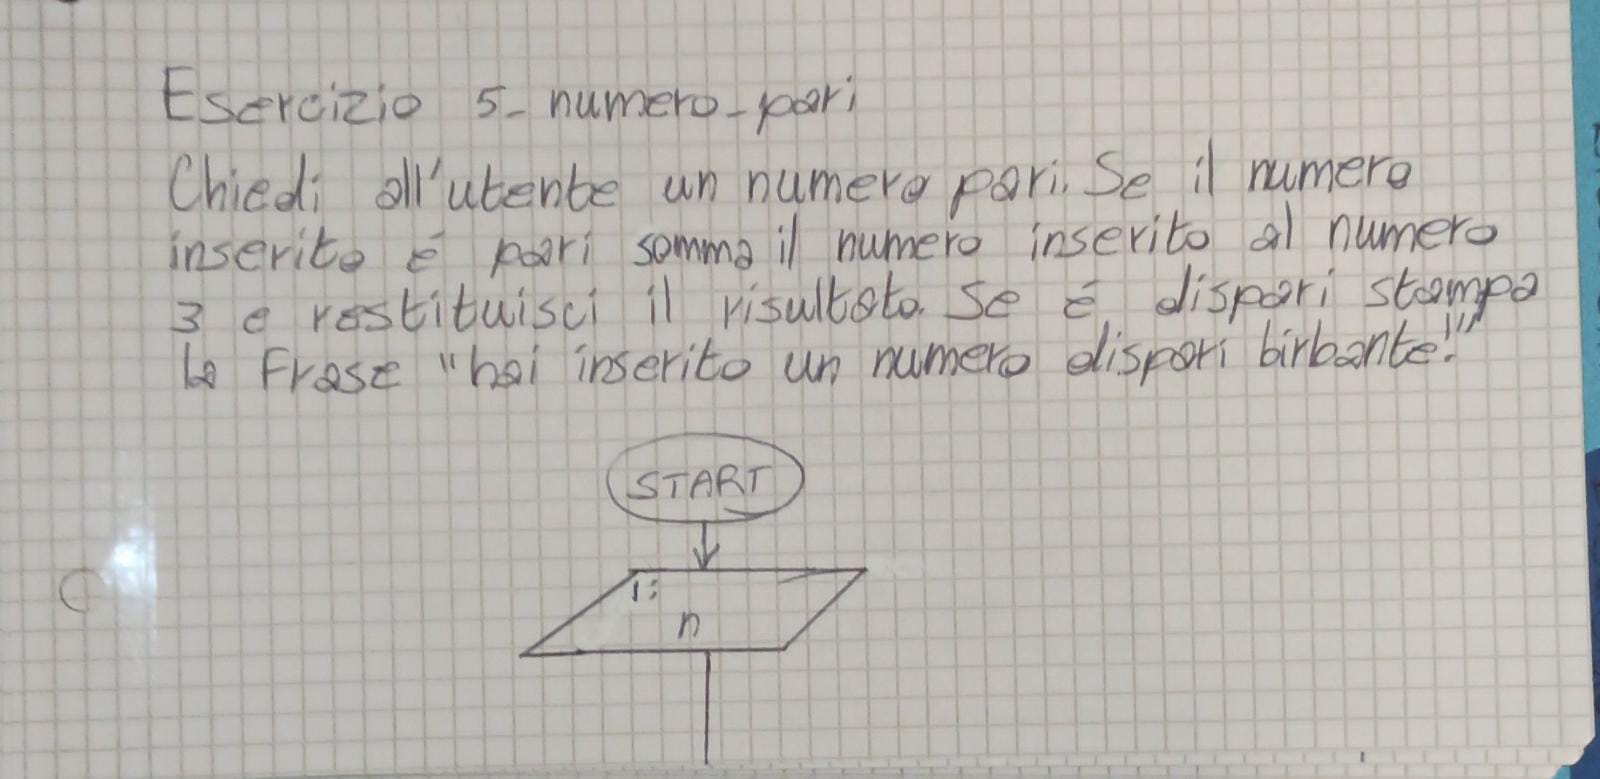 Esercizio 5-numero-pari
Chiedi all'utente un numero pari. Se il numero
inserito é pari somma il numero inserito al numero
3 e restituisci il risultato. Se é dispari stampa
la Frase "hai inserito un numero dispari birbante!"
START
I:
n